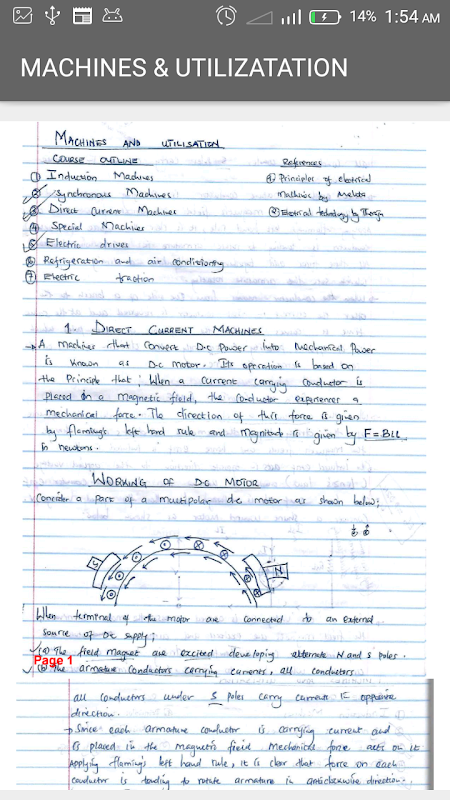 14% 1:54 AM
MACHINES & UTILIZATATION
MACHINES AND UTILISATION
COURSE OUTLINE
References
① Induction Machines
① Principles of electrical
② Synchronous Machines
machines by Mehta
③ Direct Current Machines
② Electrical technology by Theraja
④ Special Machines
⑤ Electric drives
⑥ Refrigeration and air conditioning
⑦ Electric traction
1. DIRECT CURRENT MACHINES
→ A machine that convert D.C Power into Mechanical Power
is known as D.C motor. Its operation is based on
the Principle that; When a current carrying conductor is
placed in a magnetic field, the conductor experiences a
mechanical force. The direction of this force is given
by flemings left hand rule and magnitude is given by F=BIL
in newtons.
WORKING OF DC MOTOR
Consider a part of a multipolar d.c motor as shown below;
S
N
When terminal of the motor are connected to an external
source of DC supply;
(a) The field magnet are excited developing alternate N and S poles.
Page 1
(b) The armature conductors carrying currents, all conductors
all conductors under S poles carry current in opposite
direction.
→ Since each armature conductor is carrying current and
is placed in the magnetic field mechanical force acts on it
Applying flemings left hand rule, it is clear that force on each
conductor is tending to rotate armature in anticlockwise direction.